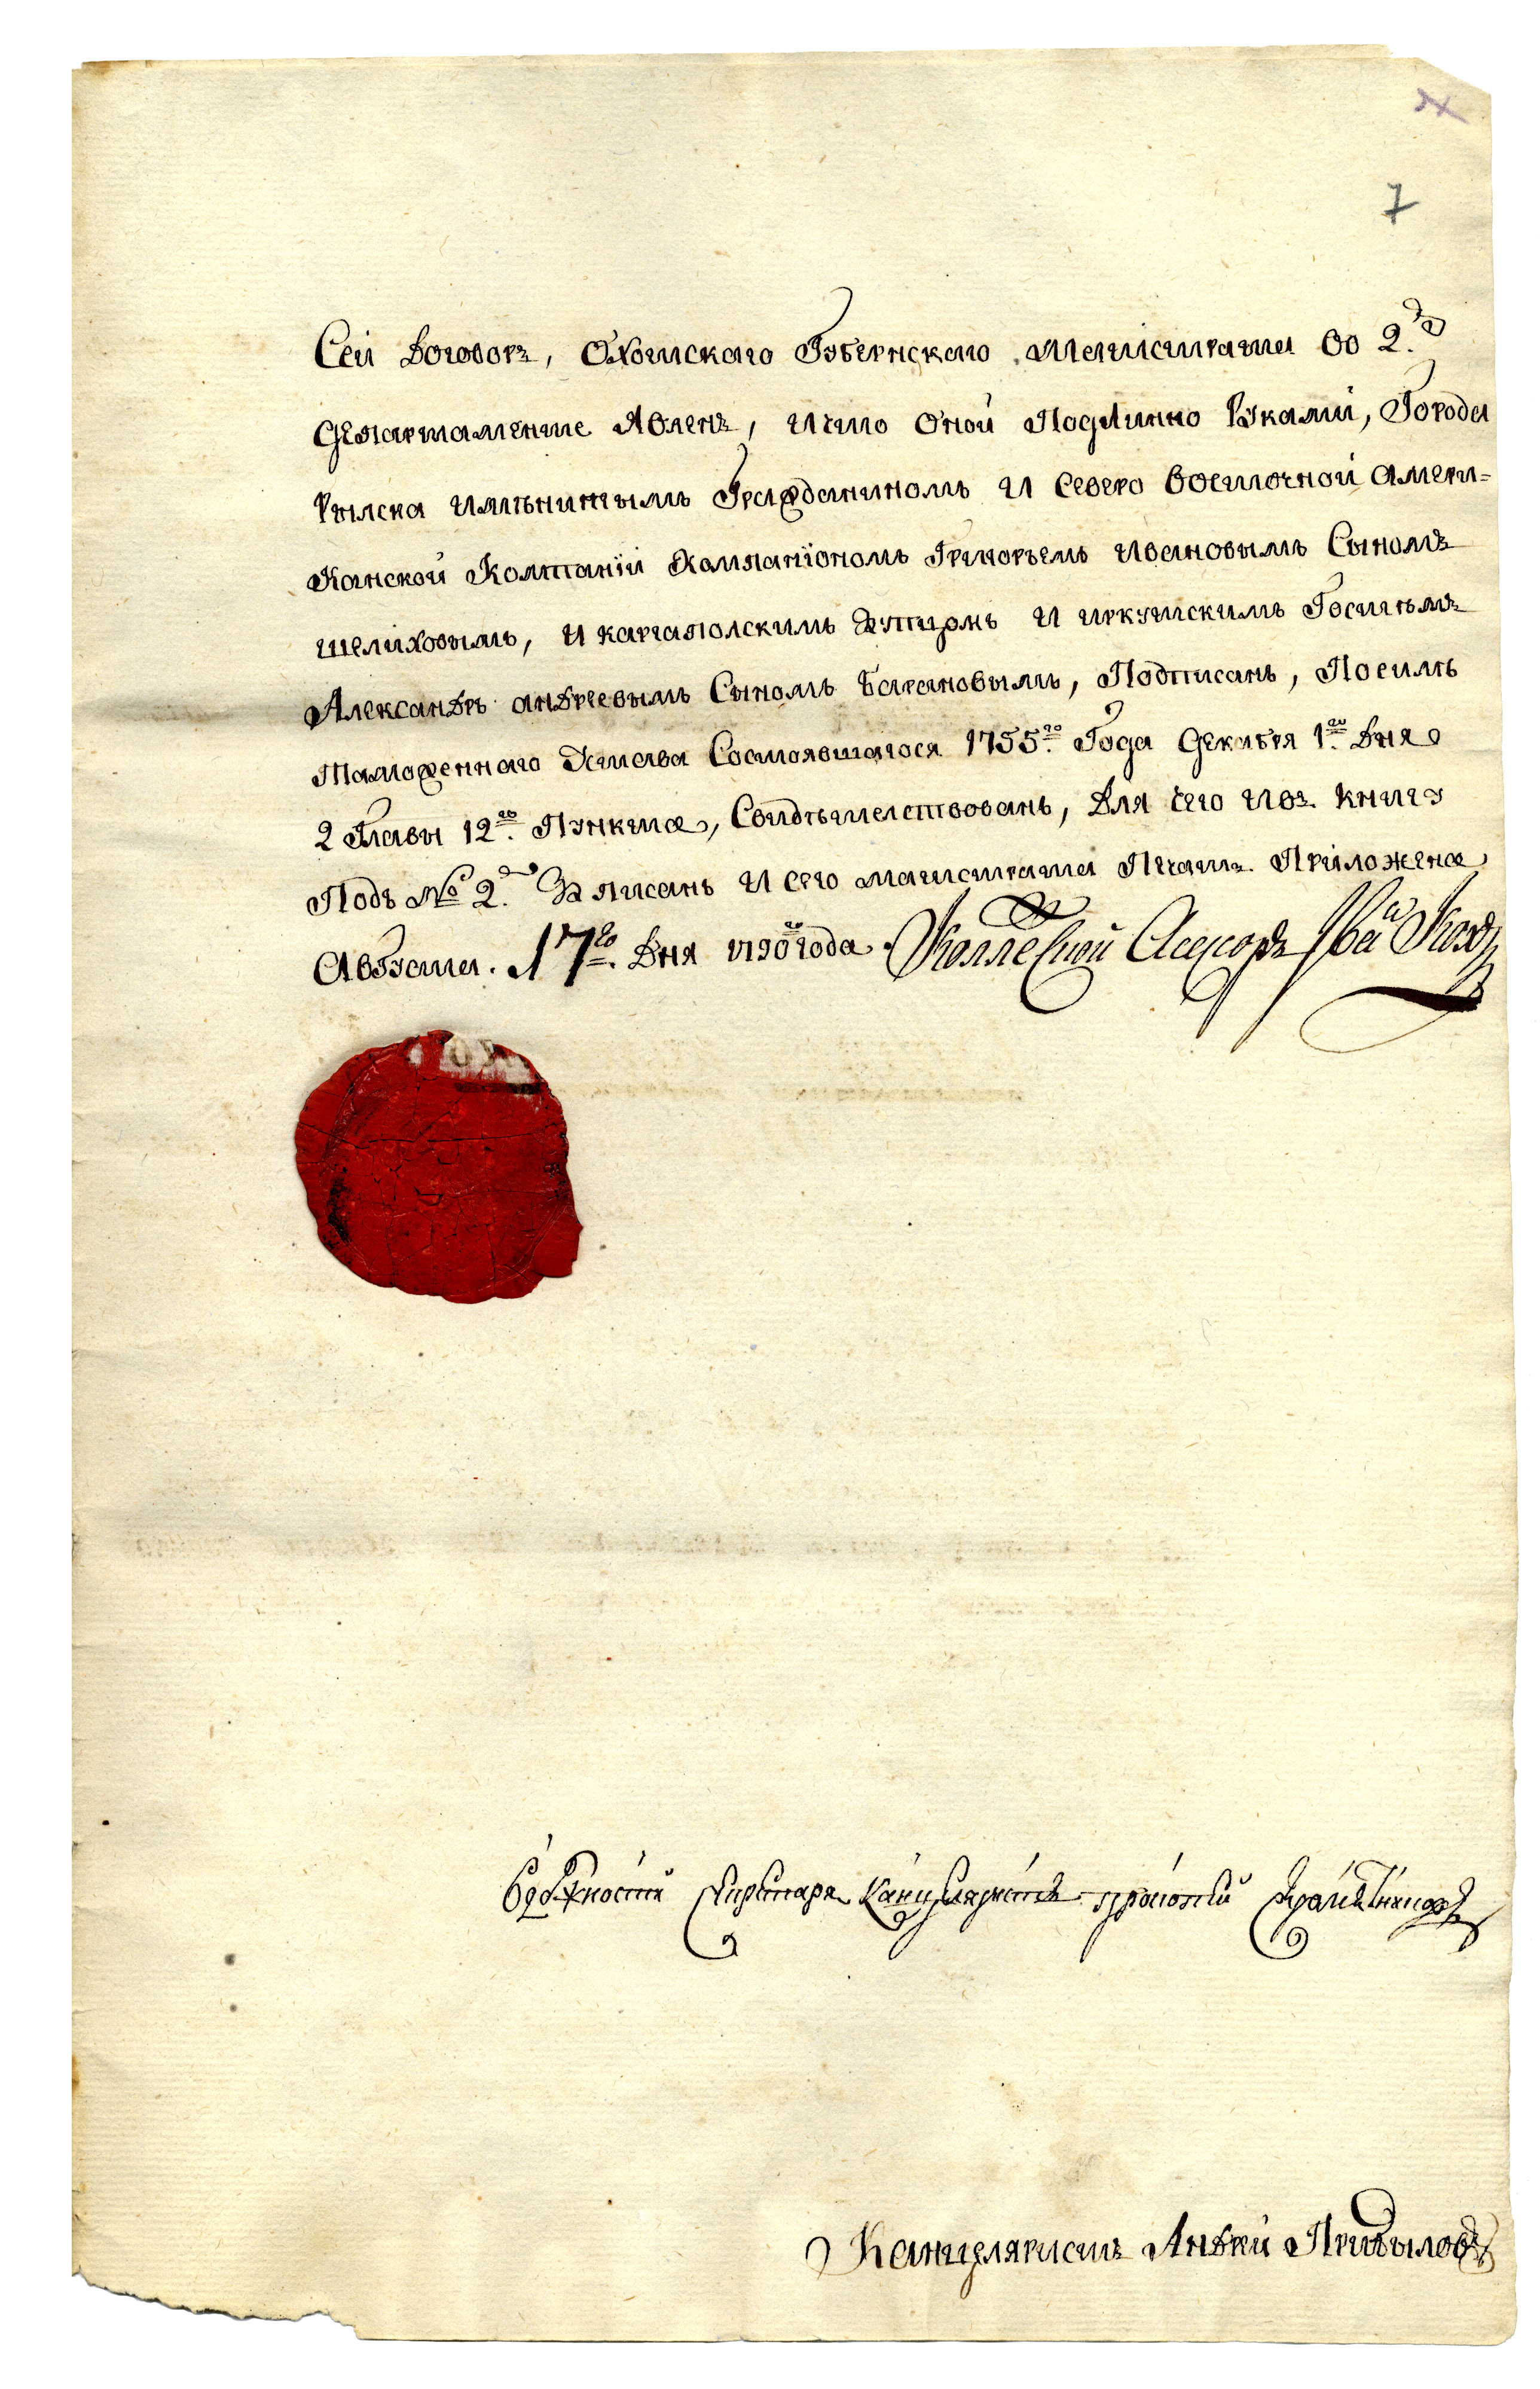 7
Сеи Договоръ, Охотскаго Губернскаго Магистрата во 2.мъ
Департаменте Явленъ, и что оной Подлинно Руками, Города
Рылска имѣнитымъ Гражданиномъ и Северо восточной Амери-
Канской Компанїи Компанїономъ Григорьемъ Ивановымъ Сыномъ
шелиховымъ, и каргаполскимъ Купцомъ и иркутскимъ Гостемъ
Александръ андреевымъ Сыномъ Барановымъ, Подписанъ, По силѣ
Таможеннаго Устава Состоявшагося 1755го Года Декабря 1го Дня
2 Главы 12го Пункта, Свидѣтелствованъ, Для чего и въ книгу
Подъ № 2.мъ Записанъ и сего магистрата Печать Приложена
Августа. 17го Дня 1790го года. Коллежской Асесоръ
Канцеляристъ Андреи Прибыловъ